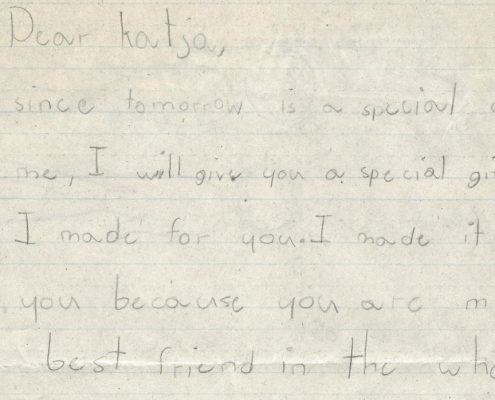 Dear Katja,
since tomorrow is a special
me, I will give you a special
I made for you. I made it
you because you are
best friend in the